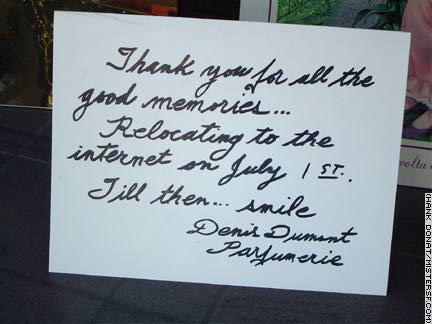 Thank you for all the
good memories...
Relocating to the
internet on July 1 ST.
Till then... smile
Denis Dumont
Parfumerie
volta
(HANK DONAT/MISTERSF.COM)